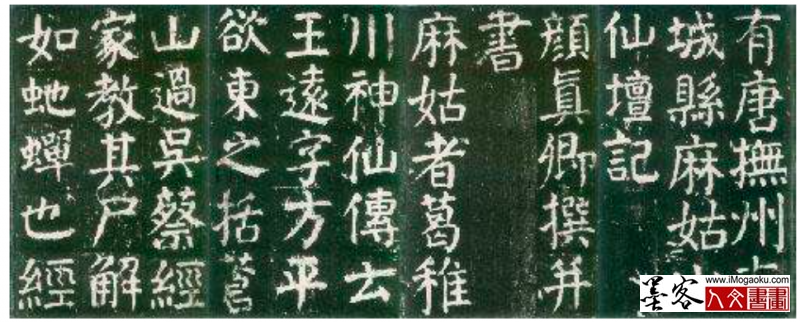 有唐撫州
城縣麻姑
仙壇記
顏眞卿撰并
書
麻姑者葛稚
川神仙傳云
王遠字方平
欲東之括蒼
山過吳蔡經
家教其尸解
如虵蟬也經
www.iMogaoku.com
墨客
人文書畫